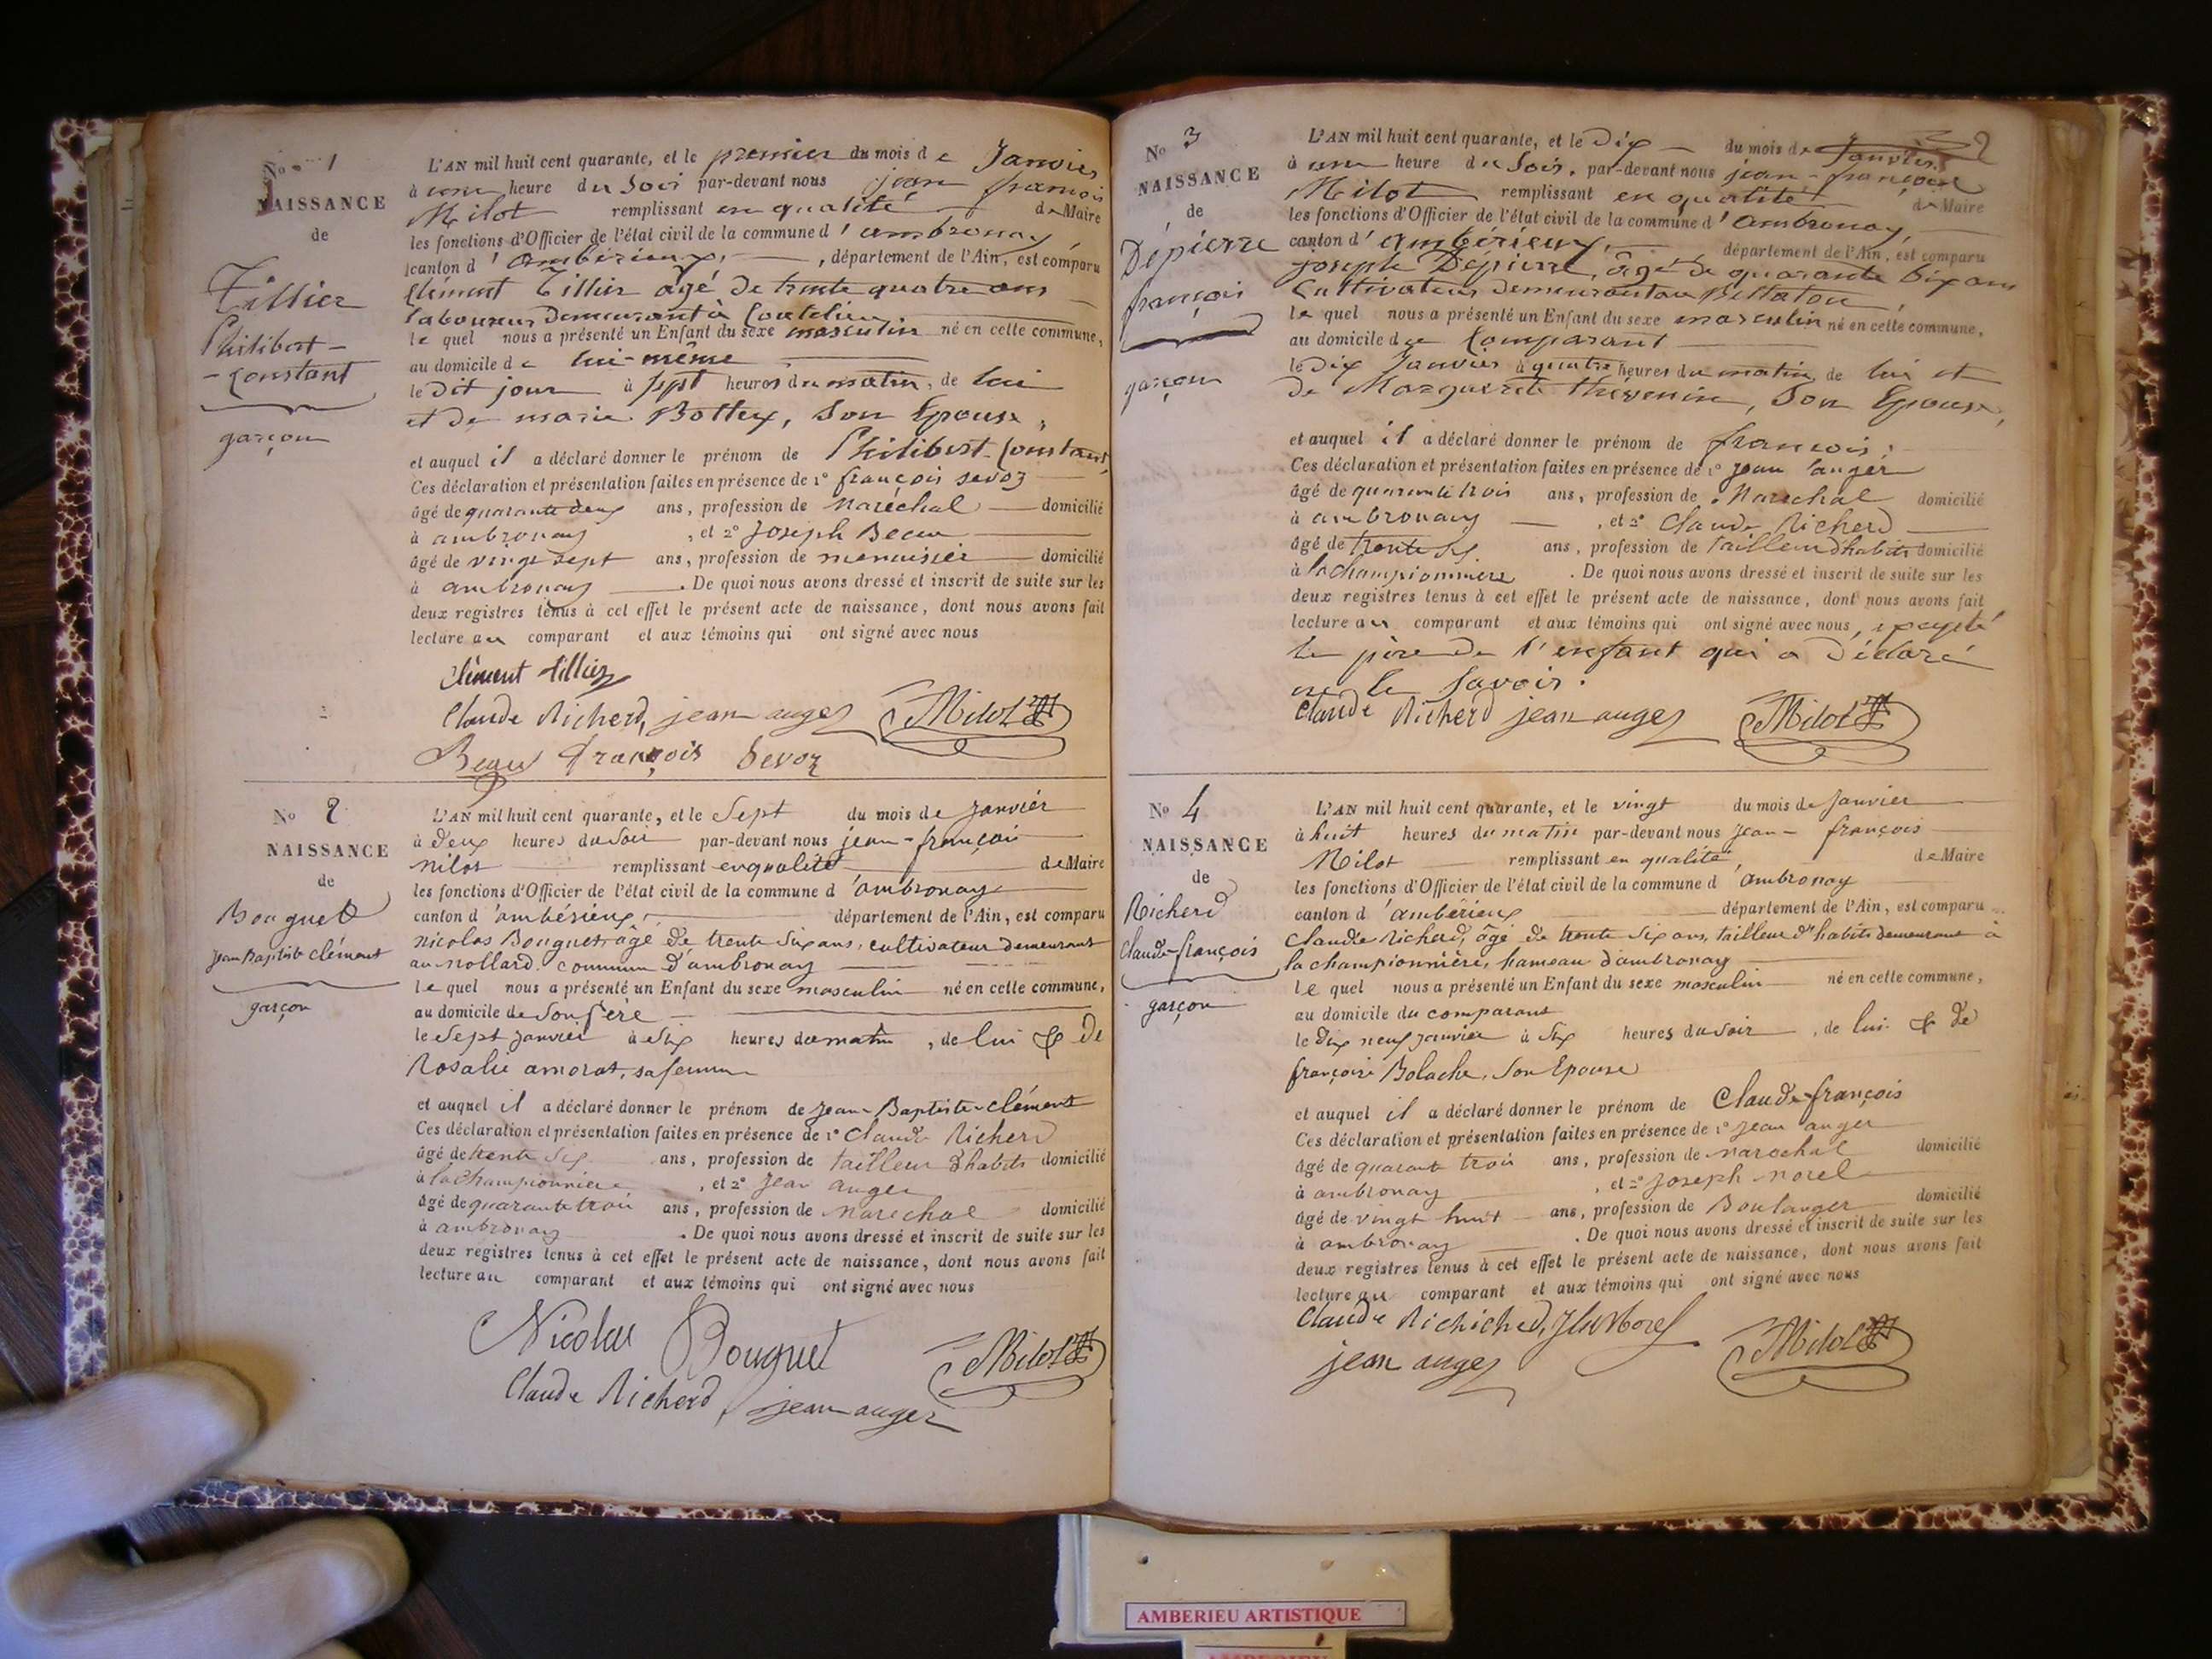 No 1
NAISSANCE
de
Tillier
Philibert-
-Constant
garçon
L'AN mil huit cent quarante, et le premier du mois de Janvier
à une heure du Soir par-devant nous jean françois
Milot remplissant en qualité de Maire
les fonctions d'Officier de l'état civil de la commune d'ambronay
canton d'ambérieux, département de l'Ain, est comparu
Clément Tillier âgé de trente quatre ans
laboureur demeurant à
le quel nous a présenté un Enfant du sexe masculin né en cette commune,
au domicile de lui-même
le dit jour à sept heures du matin, de lui
et de marie Bottex, Son Epouse,
et auquel il a déclaré donner le prénom de Philibert-Constant,
Ces déclaration et présentation faites en présence de 1° françois sevoz
âgé de quarante deux ans, profession de Maréchal domicilié
à ambronay, et 2° Joseph Beau
âgé de vingt sept ans, profession de menuisier domicilié
à ambronay. De quoi nous avons dressé et inscrit de suite sur les
deux registres tenus à cet effet le présent acte de naissance, dont nous avons fait
lecture au comparant et aux témoins qui ont signé avec nous
Clément tillier
Claude Richerd, jean auger Milot
Beau François Sevoz
No 2
NAISSANCE
de
Bouguet
Jean Baptiste clément
garçon
L'AN mil huit cent quarante, et le Sept du mois de Janvier
à deux heures du Soir par-devant nous jean-françois
Milot remplissant en qualité de Maire
les fonctions d'Officier de l'état civil de la commune d'ambronay
canton d'ambérieux, département de l'Ain, est comparu
Nicolas Bouguet, âgé de trente Six ans, cultivateur demeurant
au Mollard commune d'ambronay
le quel nous a présenté un Enfant du sexe masculin né en cette commune,
au domicile de Son père
le Sept Janvier à Six heures du matin, de lui & de
Rosalie amorat, sa femme
et auquel il a déclaré donner le prénom de Jean-Baptiste-clément
Ces déclaration et présentation faites en présence de 1° Claude Richerd
âgé de trente Six ans, profession de tailleur d'habits domicilié
à la Championnière, et 2° Jean auger
âgé de quarante trois ans, profession de Maréchal domicilié
à ambronay. De quoi nous avons dressé et inscrit de suite sur les
deux registres tenus à cet effet le présent acte de naissance, dont nous avons fait
lecture au comparant et aux témoins qui ont signé avec nous
Nicolas Bouguet Milot
Claude Richerd, jean auger
No 3
NAISSANCE
de
Dépierre
françois
garçon
2
L'AN mil huit cent quarante, et le Dix du mois de Janvier,
à une heure du Soir, par-devant nous jean-françois
Milot remplissant en qualité de Maire
les fonctions d'Officier de l'état civil de la commune d'ambronay,
canton d'ambérieux, département de l'Ain, est comparu
joseph Dépierre, âgé de quarante Six ans
Cultivateur demeurant au Bellaton,
le quel nous a présenté un Enfant du sexe masculin né en cette commune,
au domicile de Comparant
le Dix Janvier à quatre heures du matin, de lui et
de Marguerite thévenin, Son Epouse,
et auquel il a déclaré donner le prénom de françois.
Ces déclaration et présentation faites en présence de 1° Jean auger
âgé de quarante trois ans, profession de Maréchal domicilié
à ambronay, et 2° Claude Richerd
âgé de trente Six ans, profession de tailleur d'habits domicilié
à la championnière. De quoi nous avons dressé et inscrit de suite sur les
deux registres tenus à cet effet le présent acte de naissance, dont nous avons fait
lecture au comparant et aux témoins qui ont signé avec nous, excepté
le père de l'enfant qui a déclaré
ne le Savoir.
Claude Richerd jean auger Milot
No 4
NAISSANCE
de
Richerd
Claude-françois
garçon
L'AN mil huit cent quarante, et le vingt du mois de Janvier
à huit heures du matin par-devant nous Jean-françois
Milot remplissant en qualité, de Maire
les fonctions d'Officier de l'état civil de la commune d'ambronay
canton d'ambérieux département de l'Ain, est comparu
Claude Richerd, âgé de trente Six ans, tailleur d'habits demeurant à
la championnière, hameau d'ambronay
le quel nous a présenté un Enfant du sexe masculin né en cette commune,
au domicile du comparant
le Dix neuf Janvier à Six heures du soir, de lui & de
françoise Bolache, Son Epouse
et auquel il a déclaré donner le prénom de Claude-françois
Ces déclaration et présentation faites en présence de 1° Jean auger
âgé de quarante trois ans, profession de Maréchal domicilié
à ambronay, et 2° Joseph Morel
âgé de vingt huit ans, profession de Boulanger domicilié
à ambronay. De quoi nous avons dressé et inscrit de suite sur les
deux registres tenus à cet effet le présent acte de naissance, dont nous avons fait
lecture au comparant et aux témoins qui ont signé avec nous
Claude Richiched, Morel
jean auger Milot
AMBERIEU ARTISTIQUE
AMBERIEU